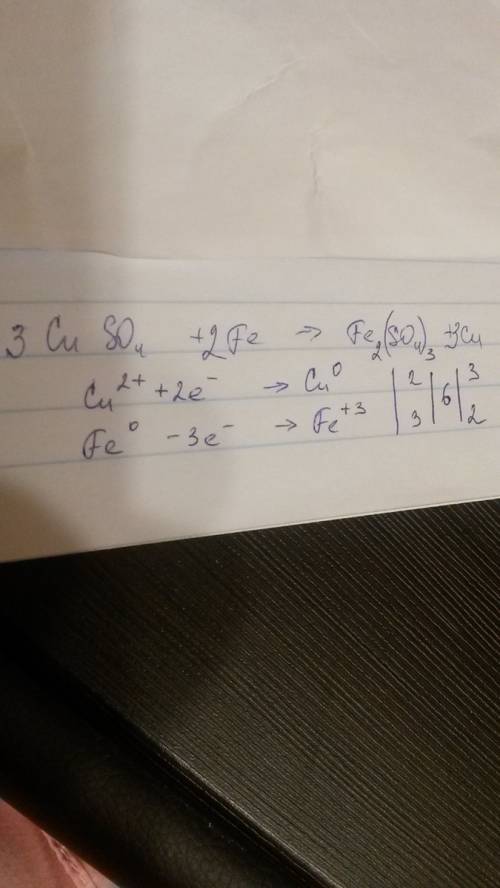 3 Cu SO₄ +2Fe → Fe₂(SO₄)₃ +3Cu
Cu²⁺ +2e⁻ → Cu⁰ | 2 | 6 | 3
Fe⁰ -3e⁻ → Fe⁺³ | 3 | | 2